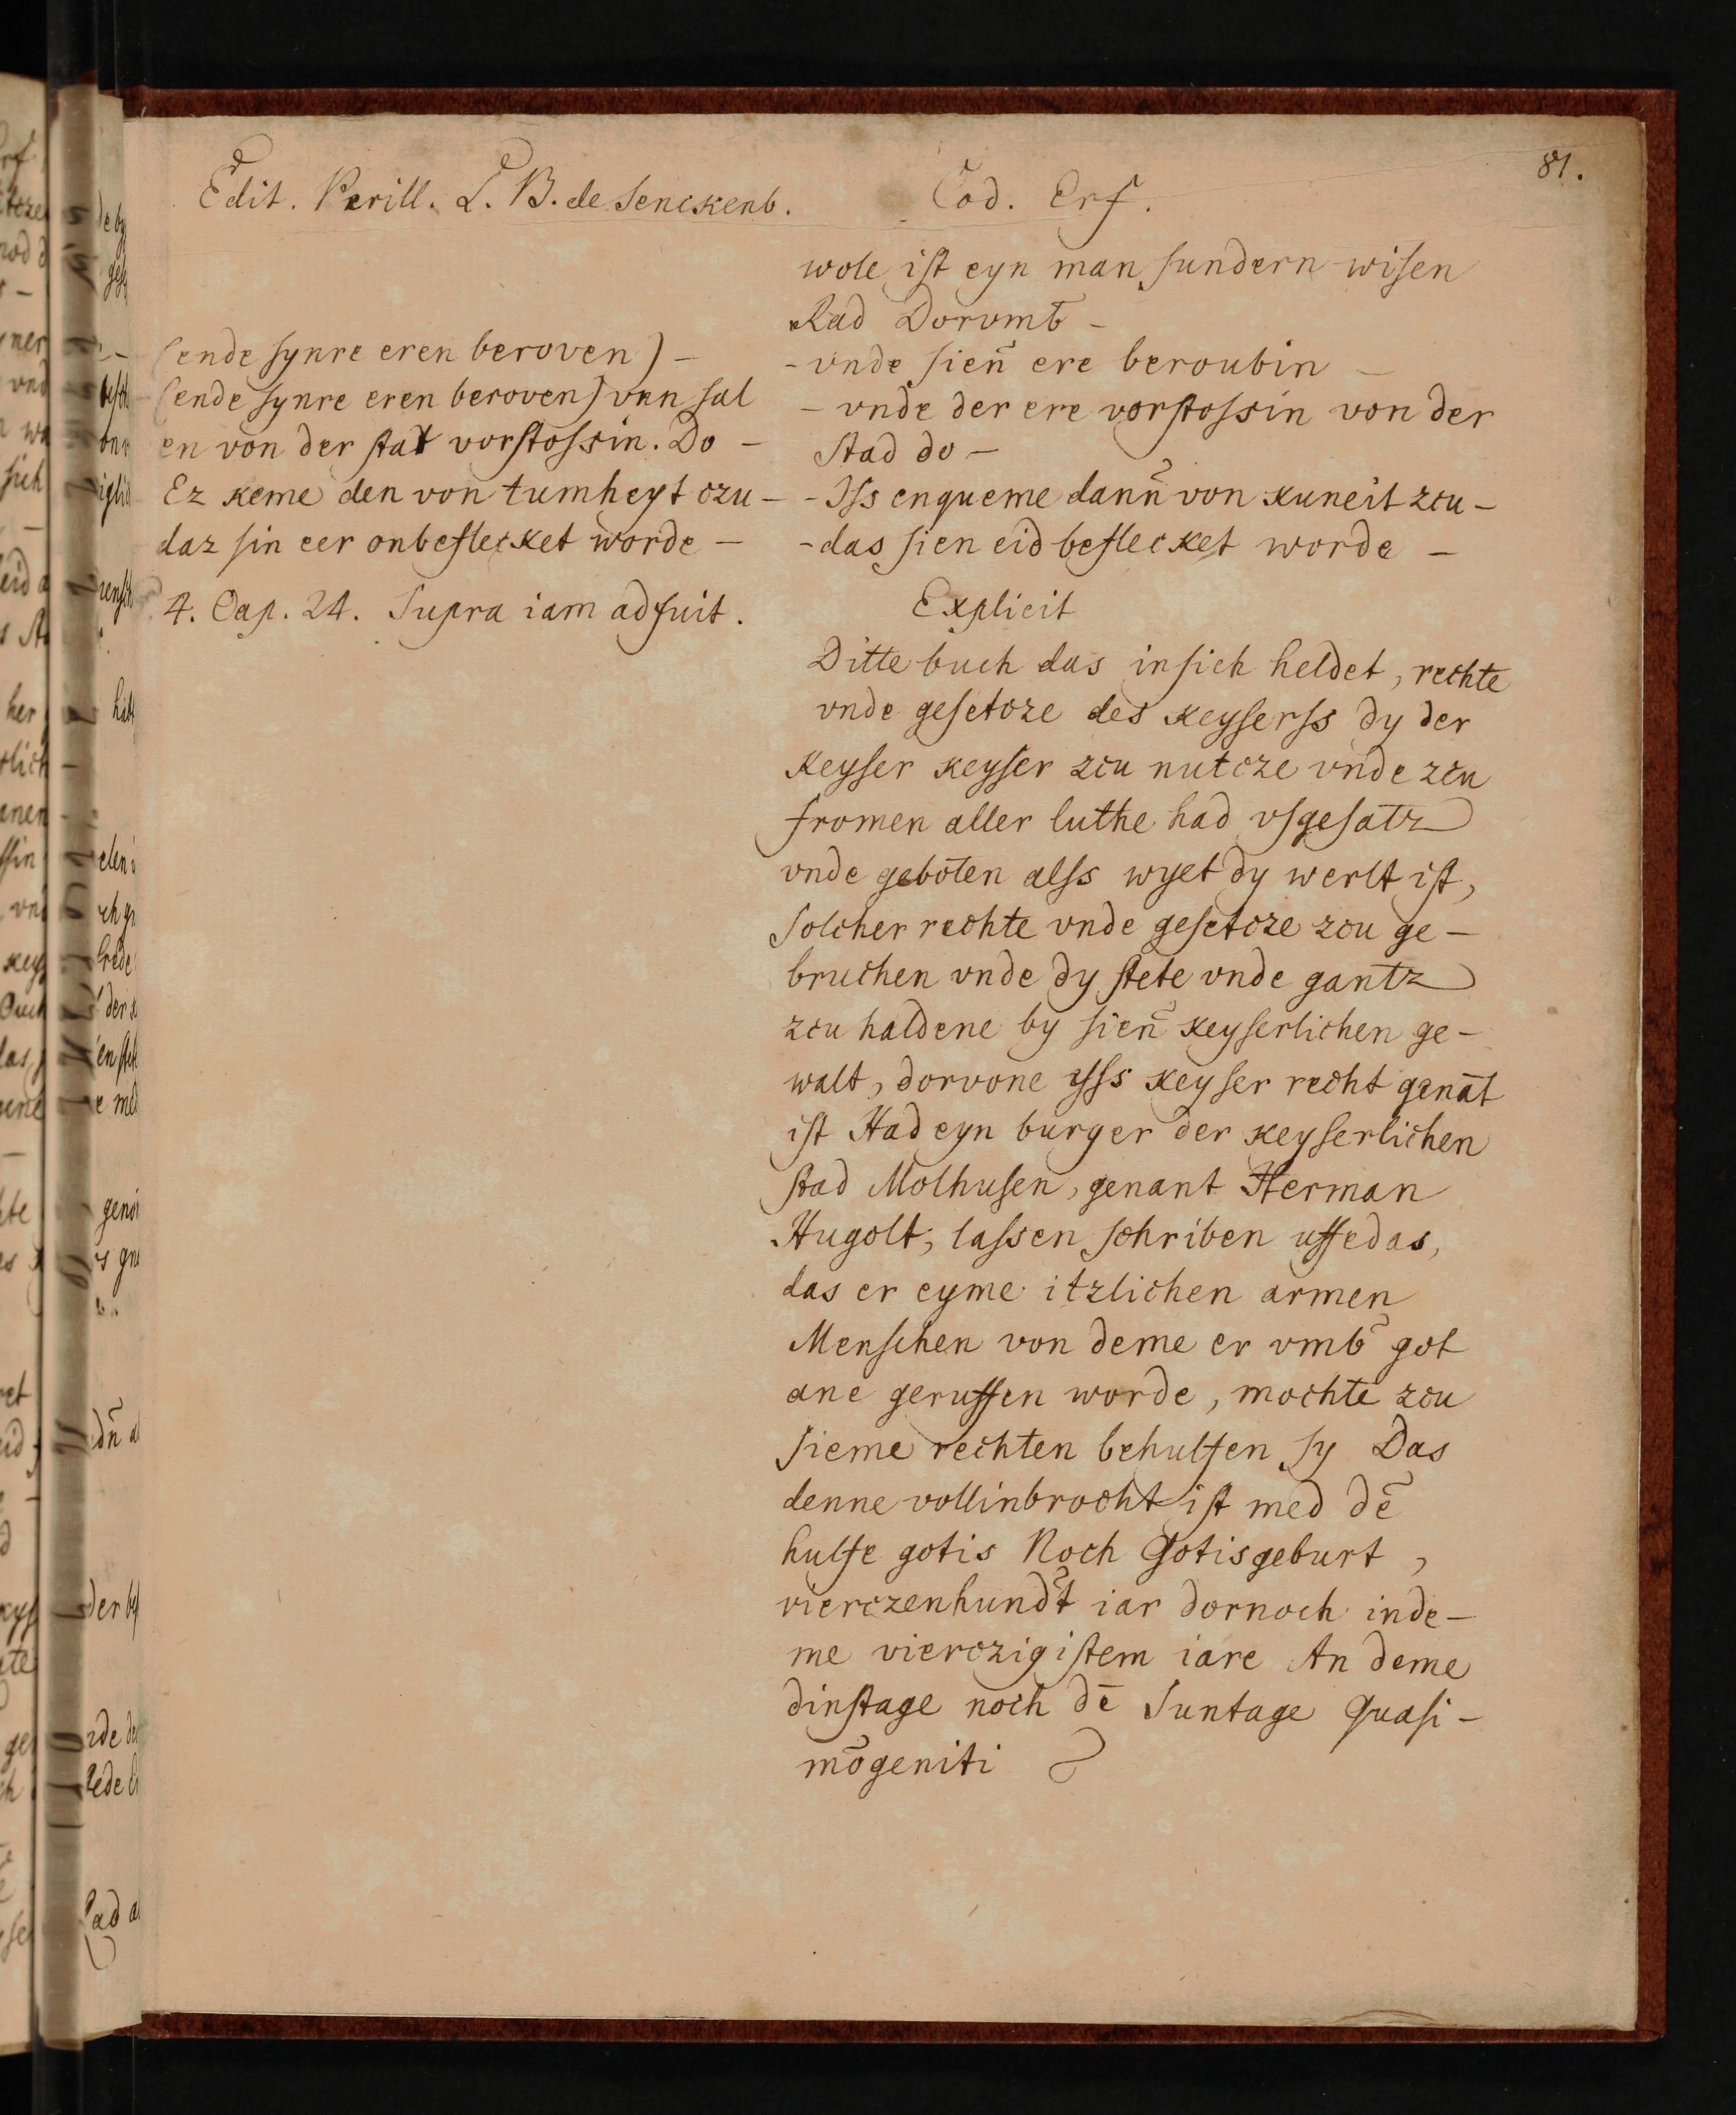 81.
Edit. Perill. L. B. de Senckenb.
(ende synre eren beroven) –
(ende synre eren beroven) vnn sal
en von der stat vorstossin. Do –
Ez keme den von tumheyt czu –
daz sin eer onbeflecket worde –
4. Cap. 24. Supra iam adfuit.
Cod. Erf.
wole ist eyn man sundern wisen
Rad Dorvmb̄ –
- vnde sien̄ ere beroubin –
– vnde der ere vorstossin von der
stad do –
- Iss enqueme dann̄ von kuneit zcu –
- das sien eid beflecket worde –
Explicit
Ditte buch das in sich heldet, rechte
vnde gesetcze des keyserss dy der
Keyser keyser zcu nutcze vnde zcu
fromen aller luthe had vsgesatz
vnde gebōten alss wyet dy werlt ist,
solcher rechte vnde gesetcze zcu ge –
bruchen vnde dy stete vnde gantz
zcu haldene by sien̄ keyserlichen ge –
walt, dorvone yss keyser recht genāt
ist Had eyn burger der keyserlichen
stad Molhusen, genant Herman
Hugolt, lassen schriben uffe das,
das er eyme itzlichen armen
Menschen von deme er vmb̄ got
ane geruffen worde, mochte zcu
sieme rechten behulfen sy Das
denne vollinbrocht ist med dē
hulfe gotis Noch Gotisgeburt,
vierczenhundt̄ iar dornoch inde –
me vierczigistem iare An deme
dinstage noch dē Suntage Quasi –
mōgeniti